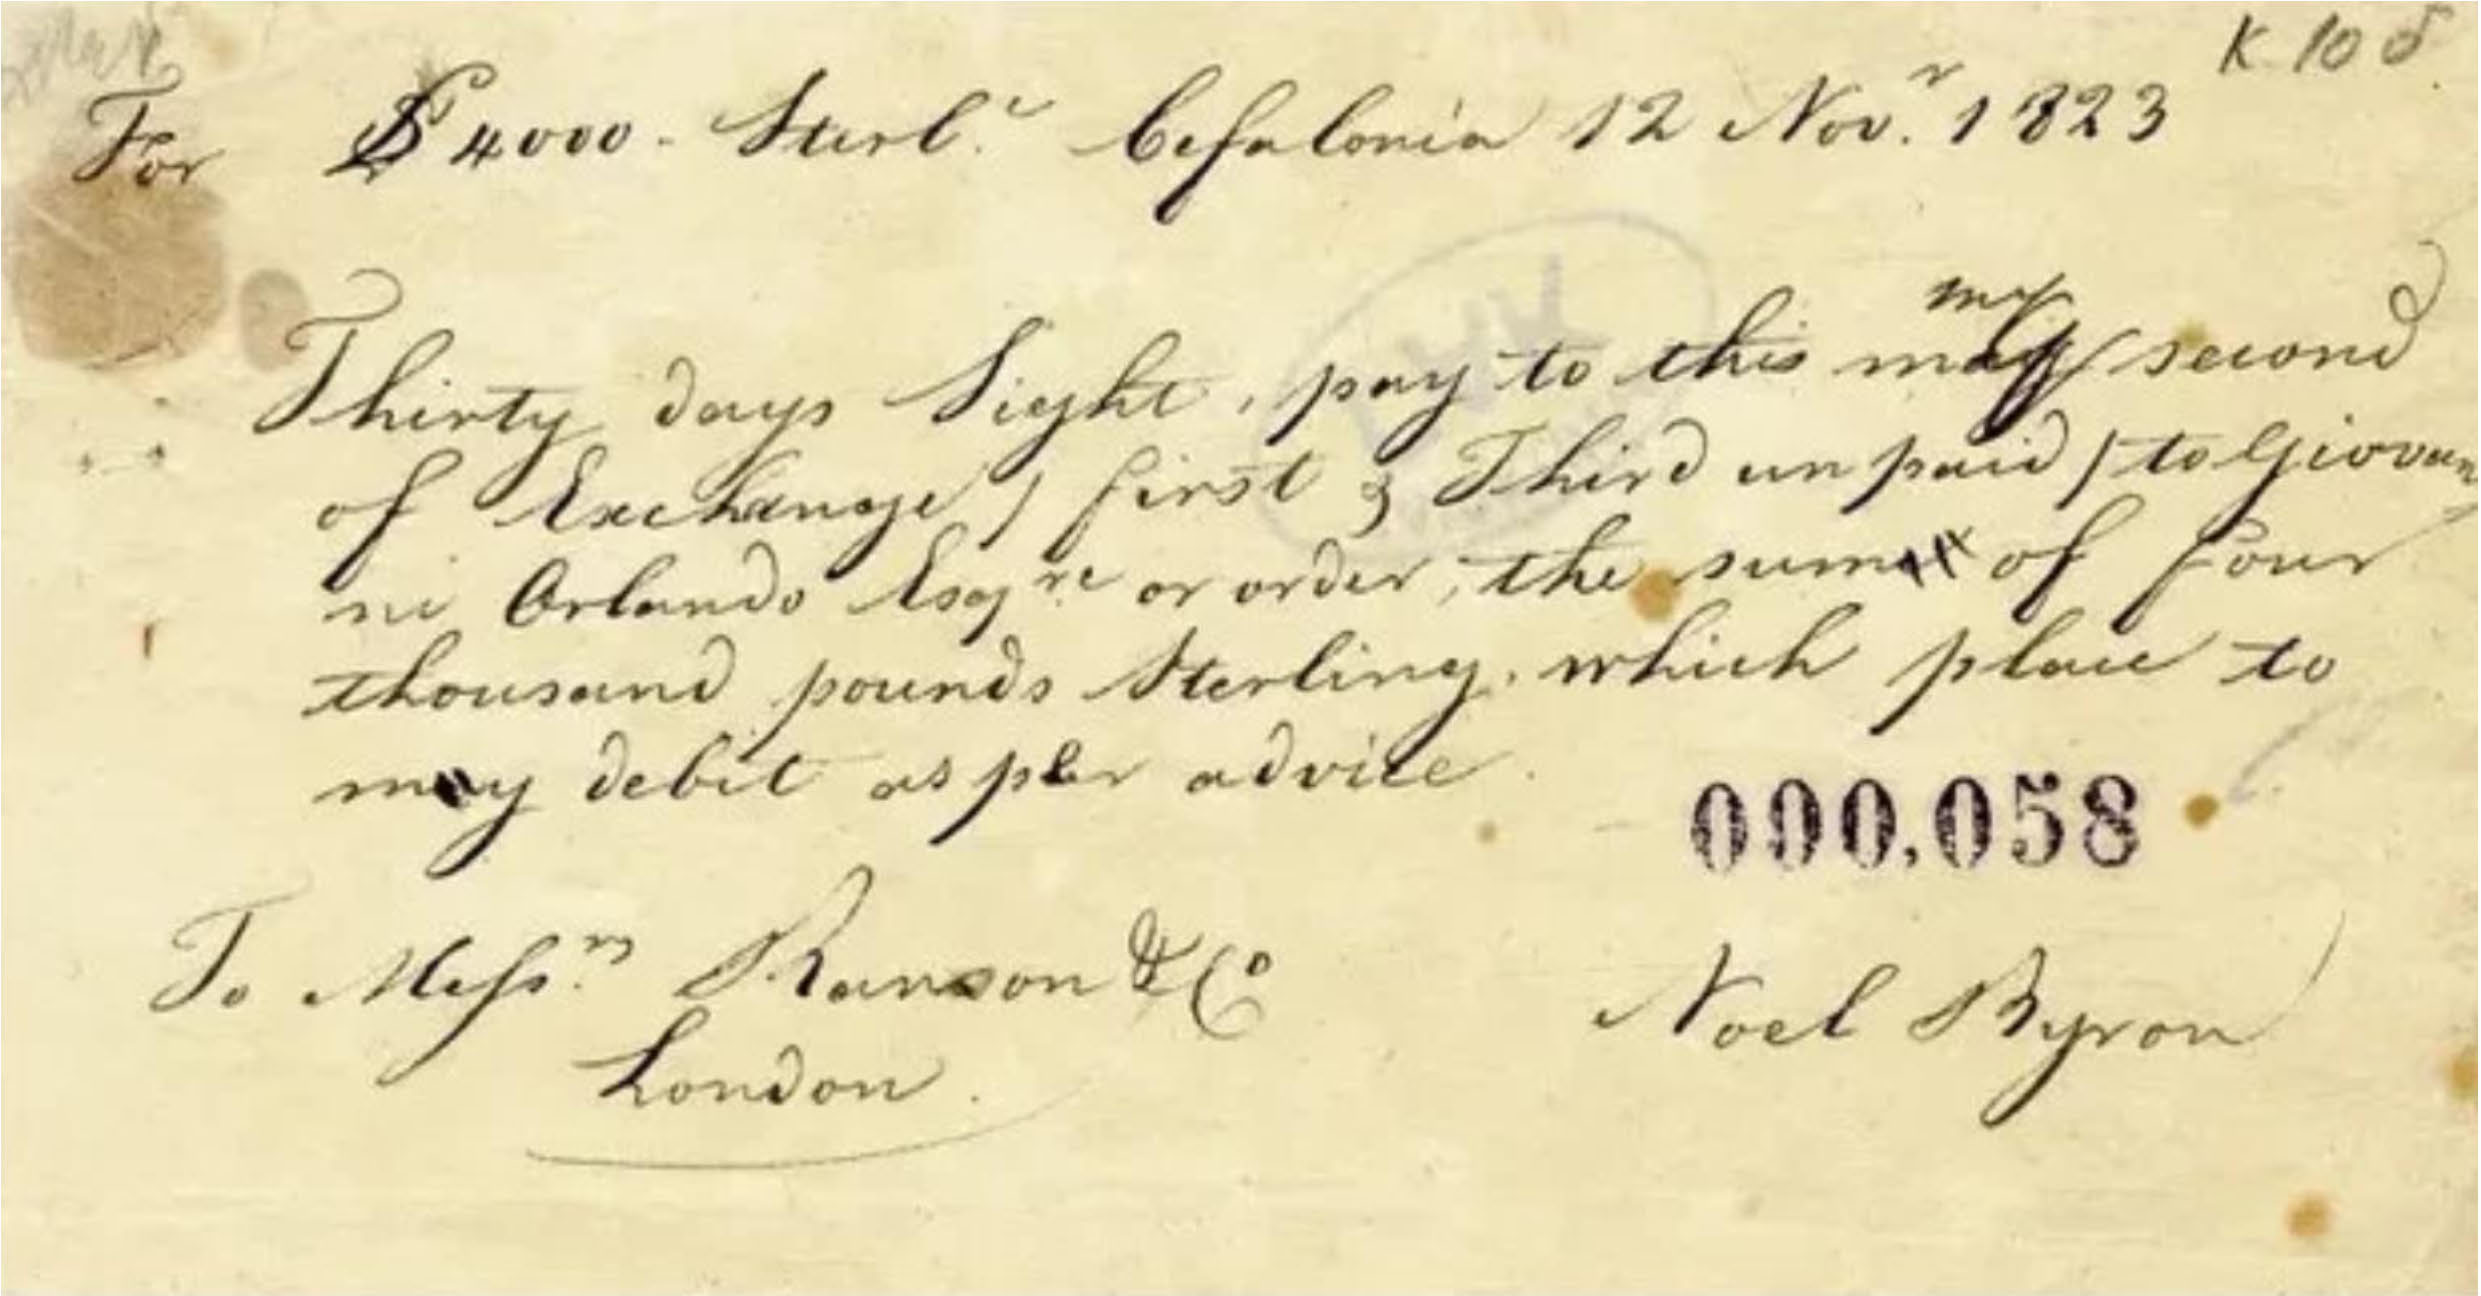 K 10 δ
For £ 4000 - Sterl.g Cefalonia 12 Nov.r 1823
my
Thirty days Sight, pay to this second
of Exchange / first & Third unpaid / to Giovan
ni Orlando Esqre or order, the sum of four
thousand pounds Sterling, which place to
my debit as per advice.
000,058
To Messrs Ranson & Co
London.
Noel Byron